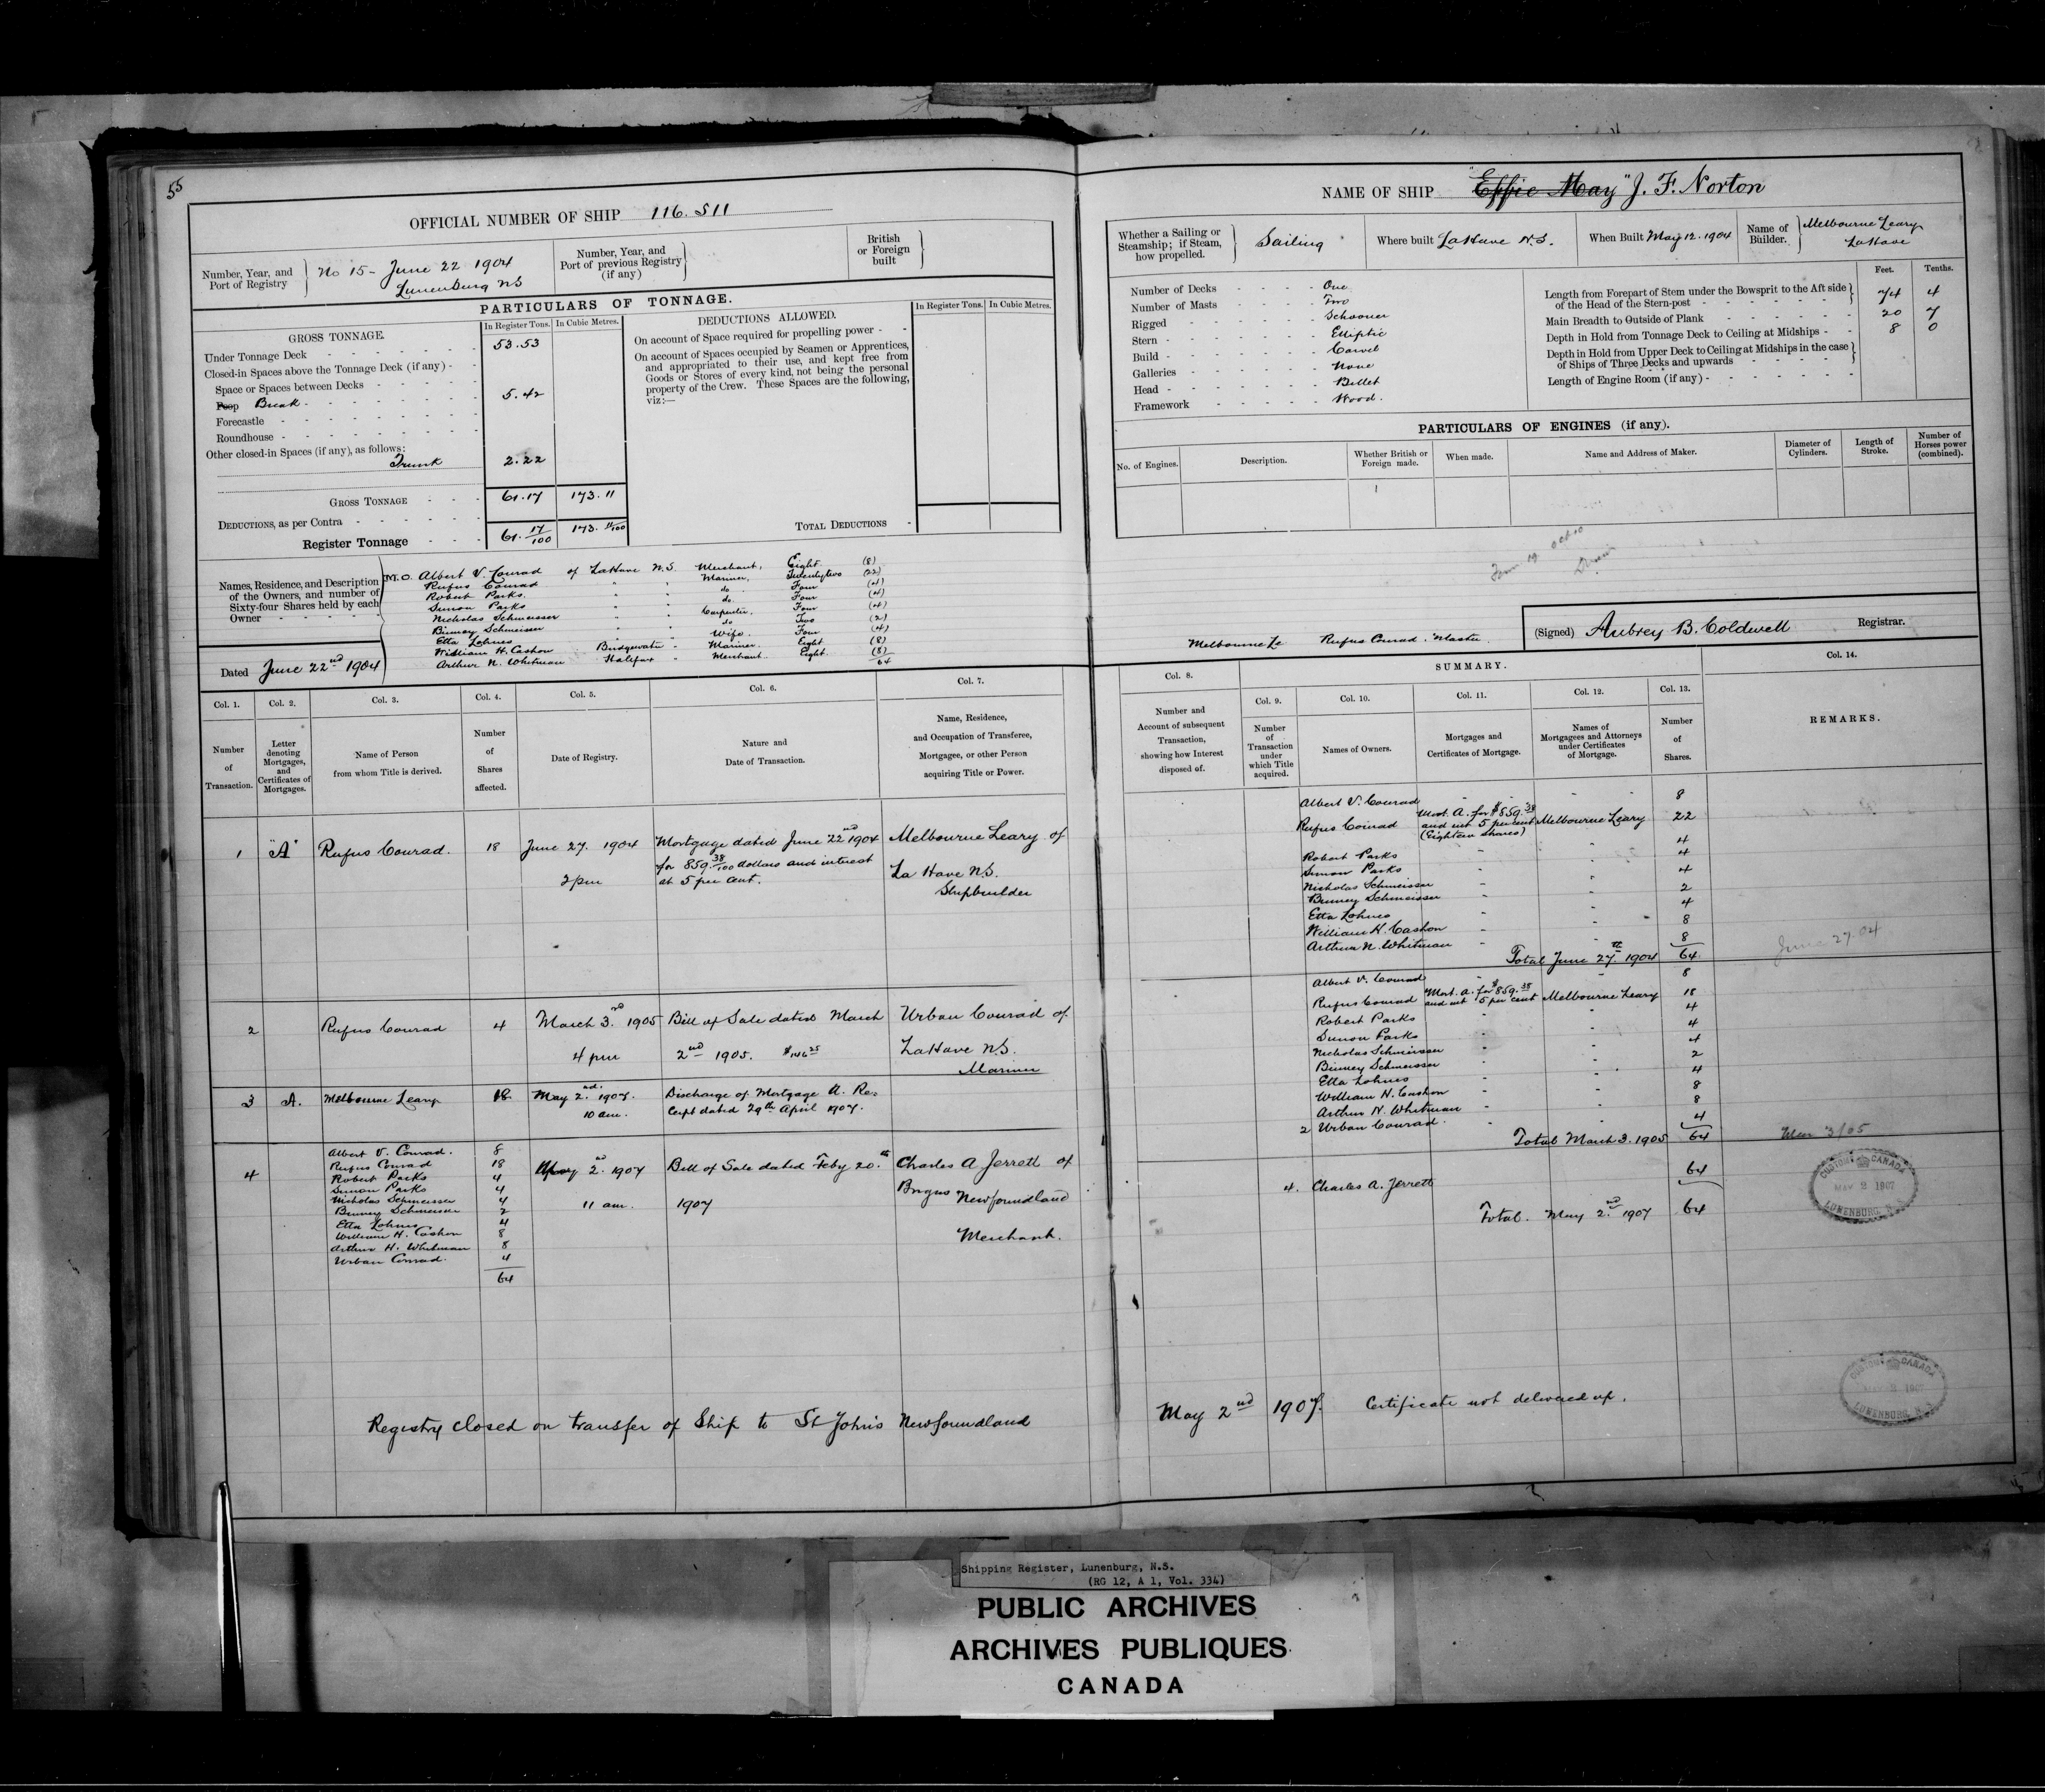 55
OFFICIAL NUMBER OF SHIP 116.511
Number, Year, and Port of Registry } No 15 - June 22 1904 Lunenburg NS
Number, Year, and Port of previous Registry (if any) }
British or Foreign built }
PARTICULARS OF TONNAGE.
GROSS TONNAGE.
In Register Tons. In Cubic Metres.
Under Tonnage Deck - 53.53
Closed-in Spaces above the Tonnage Deck (if any) -
Space or Spaces between Decks -
Poop Break - 5.42
Forecastle -
Roundhouse -
Other closed-in Spaces (if any), as follows:
Trunk 2.22
GROSS TONNAGE - 61.17 173.11
DEDUCTIONS, as per Contra -
Register Tonnage - 61.17/100 173.11/100
DEDUCTIONS ALLOWED.
In Register Tons. In Cubic Metres.
On account of Space required for propelling power -
On account of Spaces occupied by Seamen or Apprentices,
and appropriated to their use, and kept free from
Goods or Stores of every kind, not being the personal
property of the Crew. These Spaces are the following,
viz:—
TOTAL DEDUCTIONS -
Names, Residence, and Description
of the Owners, and number of
Sixty-four Shares held by each
Owner -
M.O. Albert V. Conrad of LaHave N.S. Merchant, Eight (8)
Rufus Conrad " " Mariner, Twentytwo (22)
Robert Parks. " " do. Four (4)
Simon Parks " " do. Four (4)
Nicholas Schmeisser " " Carpenter, Four (4)
Binney Schmeisser " " do Two (2)
Etta Lohnes " " Wife. Four (4)
William H. Cashon Bridgewater " Mariner. Eight (8)
Arthur N. Whitman Halifax " Merchant. Eight. (8)
64
Dated June 22nd 1904
Col. 1. Col. 2. Col. 3. Col. 4. Col. 5. Col. 6. Col. 7.
Number of Transaction.
Letter denoting Mortgages, and Certificates of Mortgages.
Name of Person from whom Title is derived.
Number of Shares affected.
Date of Registry.
Nature and Date of Transaction.
Name, Residence, and Occupation of Transferee, Mortgagee, or other Person acquiring Title or Power.
1 "A" Rufus Conrad. 18 June 27. 1904 Mortgage dated June 22nd 1904 Melbourne Leary of
for 859.38/100 dollars and interest
2 pm at 5 per cent. La Have N.S.
Shipbuilder
2 Rufus Conrad 4 March 3rd 1905 Bill of Sale dated March Urban Conrad of
4 pm 2nd 1905. $146.25 LaHave N.S.
Mariner
3 A. Melbourne Leary 18. May 2nd. 1907. Discharge of Mortgage A. Re-
10 am. ceipt dated 29th April 1907.
Albert V. Conrad. 8
4 Rufus Conrad 18 May 2nd. 1907 Bill of Sale dated Feby 20th Charles A Jerrett of
Robert Parks 4
Simon Parks 4 Brigus Newfoundland
Nicholas Schmeisser 4 11 am. 1907
Binney Schmeisser 2
Etta Lohnes 4
William H. Cashon 8 Merchant.
Arthur H. Whitman 8
Urban Conrad. 4
64
Registry closed on transfer of Ship to St John's Newfoundland
NAME OF SHIP "Effie May" J. F. Norton
Whether a Sailing or Steamship; if Steam, how propelled. } Sailing
Where built LaHave N.S.
When Built May 12. 1904
Name of Builder. } Melbourne Leary LaHave
Number of Decks - One
Number of Masts - Two
Rigged - Schooner
Stern - Elliptic
Build - Carvel
Galleries - None
Head - Billet
Framework - Wood.
Feet. Tenths.
Length from Forepart of Stem under the Bowsprit to the Aft side
of the Head of the Stern-post - 74 4
Main Breadth to Outside of Plank - 20 7
Depth in Hold from Tonnage Deck to Ceiling at Midships - 8 0
Depth in Hold from Upper Deck to Ceiling at Midships in the case
of Ships of Three Decks and upwards -
Length of Engine Room (if any) -
PARTICULARS OF ENGINES (if any).
No. of Engines. Description. Whether British or Foreign made. When made. Name and Address of Maker. Diameter of Cylinders. Length of Stroke. Number of Horses power (combined).
Melbourne Le Rufus Conrad. Master
(Signed) Aubrey B. Coldwell Registrar.
Col. 8. SUMMARY. Col. 14.
Col. 9. Col. 10. Col. 11. Col. 12. Col. 13.
Number and Account of subsequent Transaction, showing how Interest disposed of.
Number of Transaction under which Title acquired.
Names of Owners.
Mortgages and Certificates of Mortgage.
Names of Mortgagees and Attorneys under Certificates of Mortgage.
Number of Shares.
REMARKS.
Albert V. Conrad 8
Rufus Conrad Mort. A. for $859.38 and int 5 per cent (Eighteen shares) Melbourne Leary 22
Robert Parks 4
Simon Parks 4
Nicholas Schmeisser 4
Binney Schmeisser 2
Etta Lohnes 4
William H. Cashon 8
Arthur N. Whitman 8
Total June 27th. 1904 64. June 27.04
Albert V. Conrad 8
Rufus Conrad Mort. A. for $859.38 and int 5 per cent Melbourne Leary 18
Robert Parks 4
Simon Parks 4
Nicholas Schmeisser 4
Binney Schmeisser 2
Etta Lohnes 4
William H. Cashon 8
Arthur N. Whitman 8
2 Urban Conrad. 4
Total March 3. 1905 64 Mar 3/05
64
4. Charles A. Jerrett
Total. May 2nd. 1907 64
CUSTOMS CANADA
MAY 2 1907
LUNENBURG, N.S.
May 2nd 1907. Certificate not delivered up.
CUSTOMS CANADA
MAY 2 1907
LUNENBURG, N.S.
Shipping Register, Lunenburg, N.S.
(RG 12, A 1, Vol. 334)
PUBLIC ARCHIVES
ARCHIVES PUBLIQUES
CANADA